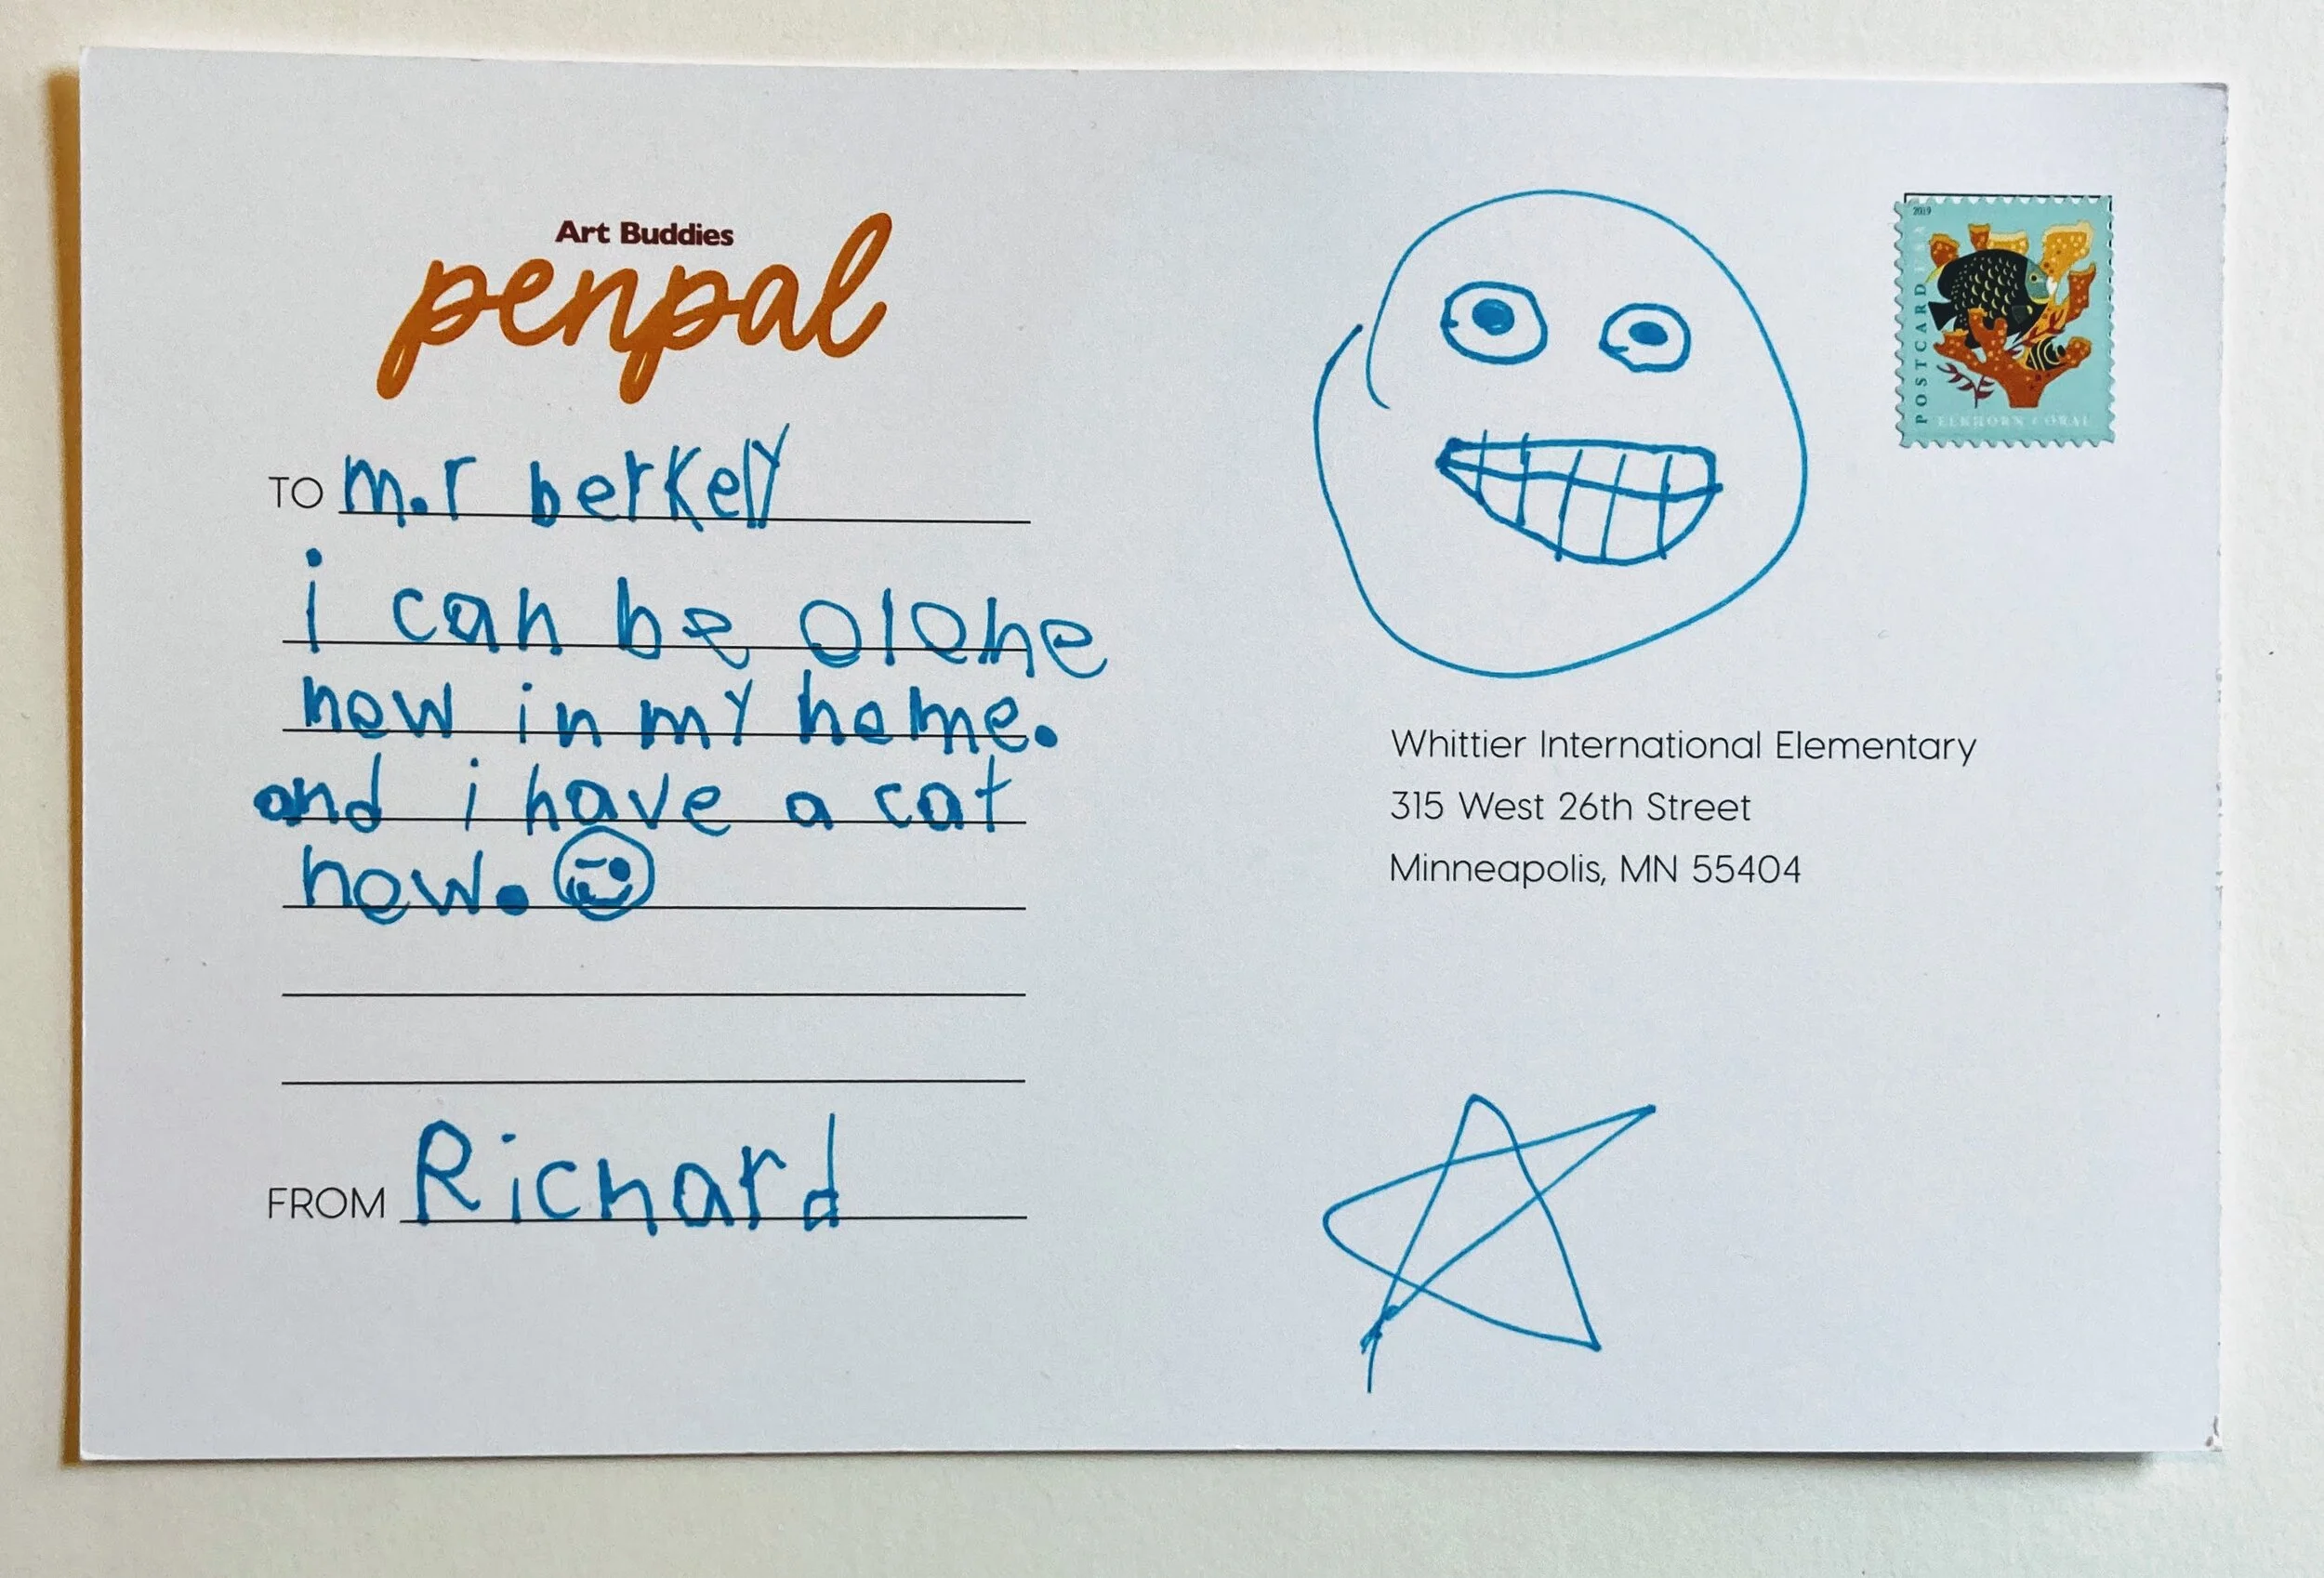 Art Buddies
penpal
TO m.r berkely
i can be alone
now in my home.
and i have a cat
now.
FROM Richard
2019
POSTCARD USA
ELKHORN CORAL
Whittier International Elementary
315 West 26th Street
Minneapolis, MN 55404